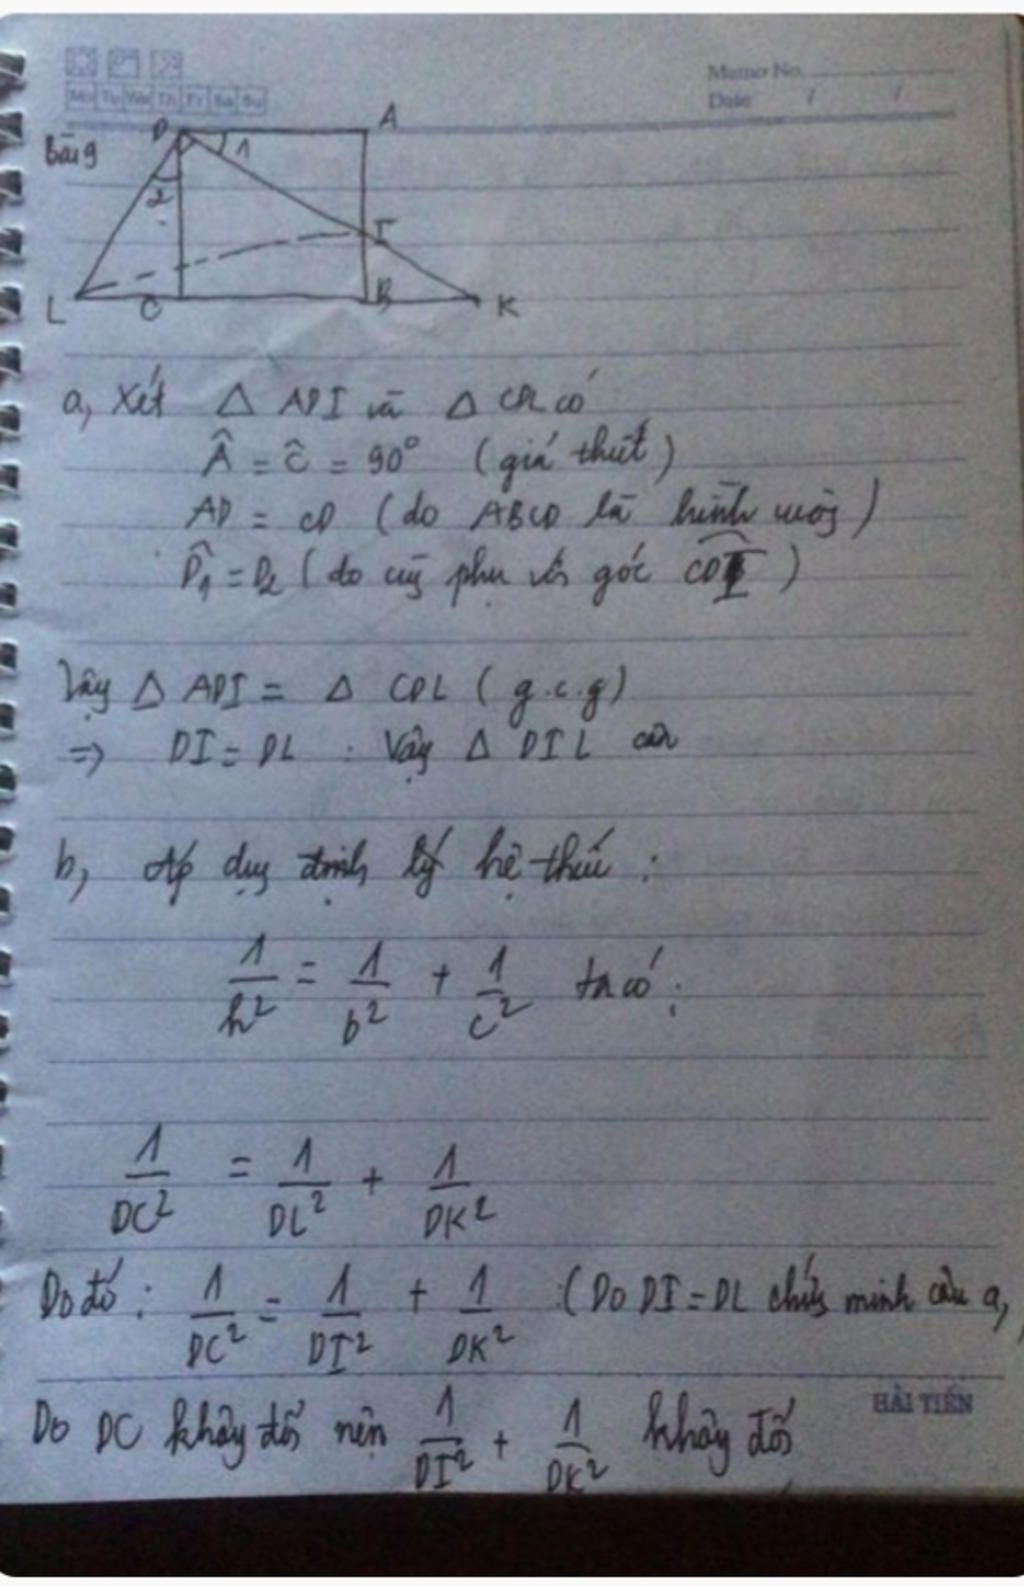 Memo No.
Mo Tu We Th Fr Sa Su
Date / /
Bài 9
D A
1
2
I
L C B K
a, Xét Δ ADI và Δ CDL có
Â = Ĉ = 90° (giả thiết)
AD = CD (do ABCD là hình vuông)
D̂₁ = D₂ (do cùng phụ với góc CDI)
Vậy Δ ADI = Δ CDL (g.c.g)
=> DI = DL . Vậy Δ DIL cân
b, Áp dụng định lý hệ thức :
1/h² = 1/b² + 1/c² ta có :
1/DC² = 1/DL² + 1/DK²
Do đó : 1/DC² = 1/DI² + 1/DK² (Do DI = DL chứng minh câu a,)
HẢI TIẾN
Do DC không đổi nên 1/DI² + 1/DK² không đổi